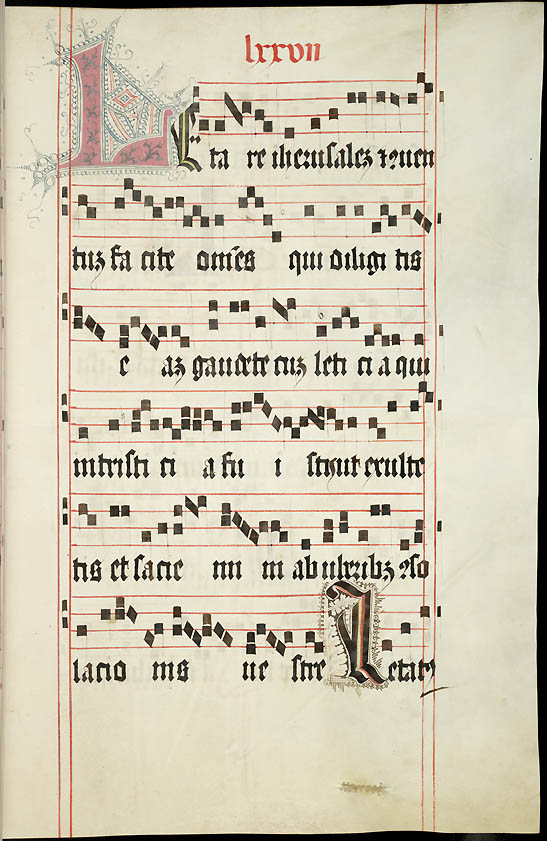 lxxvii
Leta re iherusalez ⁊ ꝯuen
tuz fa cite om̄es qui diligi tis
e az gaudete cuz leti ci a qui
in tristi ci a fu i stis ut exulte
tis et sacie mi ni ab uberibꝫ ꝯso
lacio nis ue stre Letatꝰ